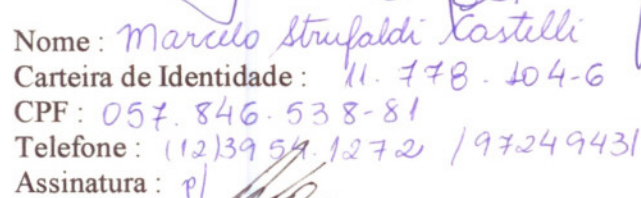 Nome : Marcelo Strufaldi Castelli
Carteira de Identidade : 11.778.104-6
CPF : 057.846.538-81
Telefone : (12)3954.1272 / 97249431
Assinatura : p/